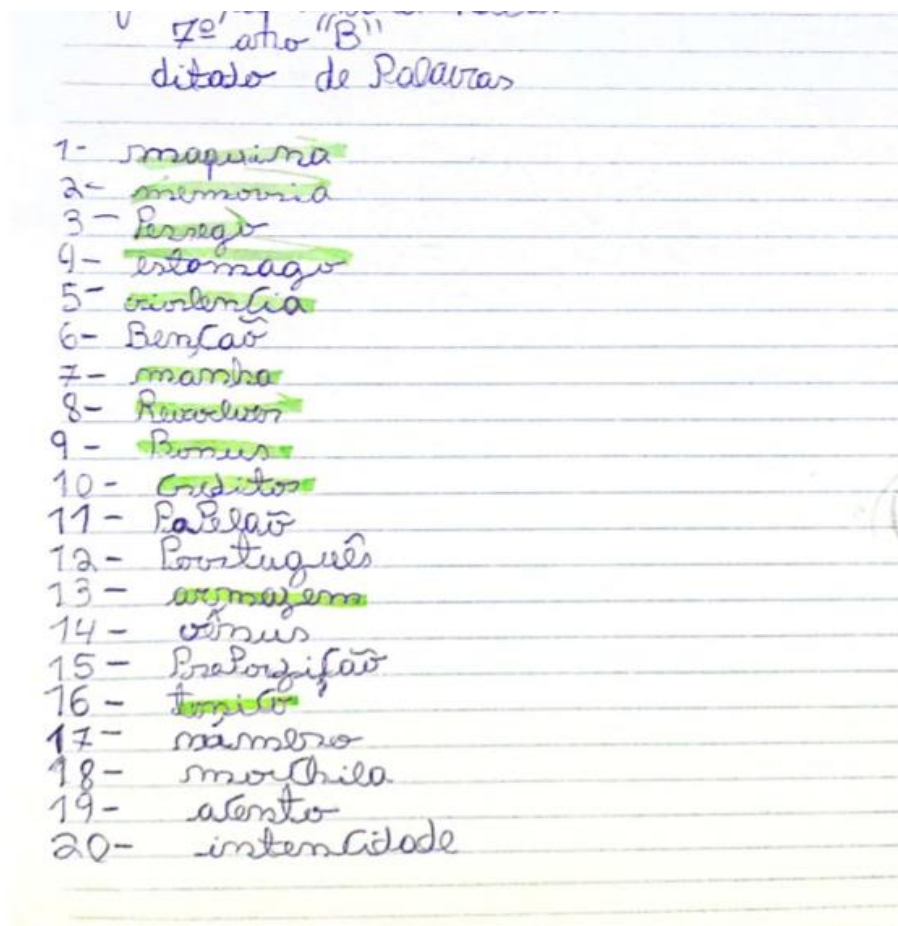 7º ano "B"
ditado de Palavras
1- maquina
2- memoria
3- Pessego
4- estomago
5- violencia
6- Bençaõ
7- manha
8- Revolver
9- Bonus
10- Creditos
11- PaPelaõ
12- Português
13- armazem
14- vênus
15- PrePorziçaõ
16- tonico
17- mámbro
18- mochila
19- acento
20- intencidade